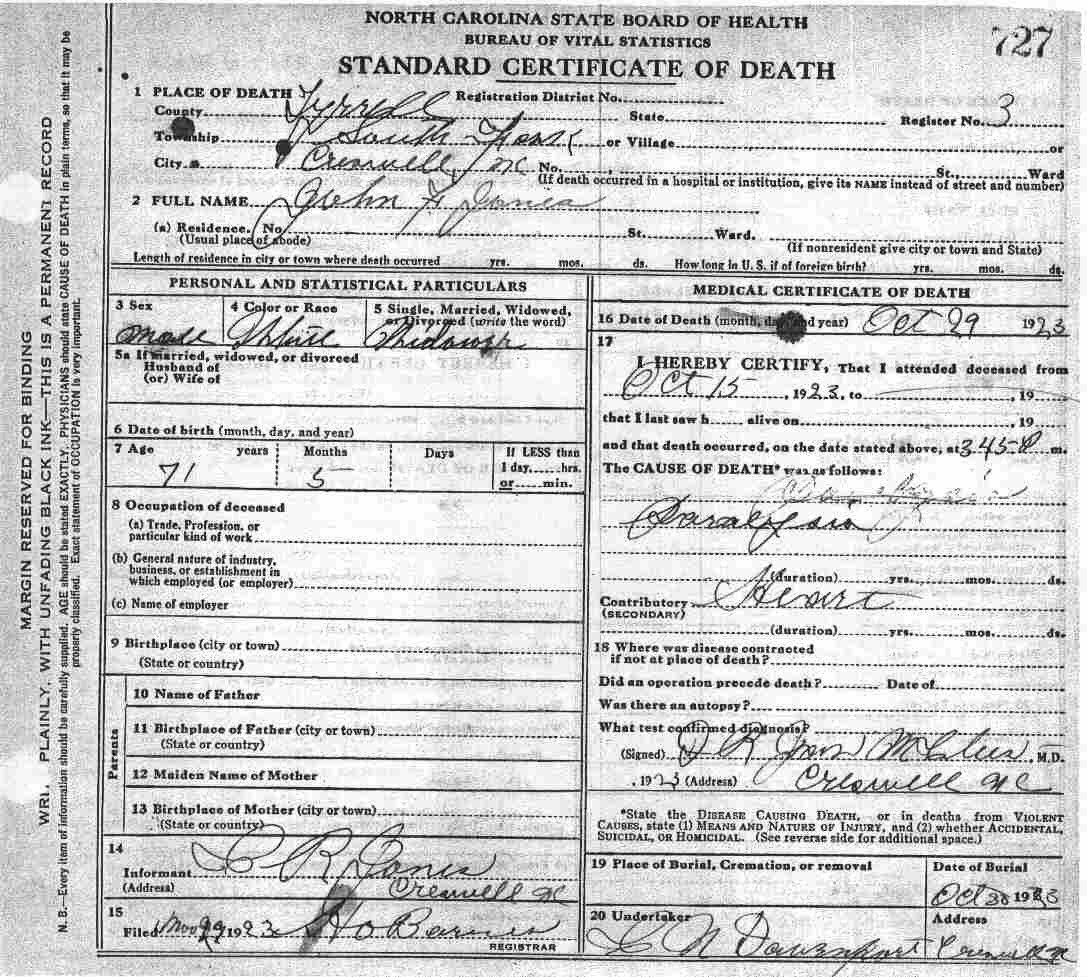 NORTH CAROLINA STATE BOARD OF HEALTH
BUREAU OF VITAL STATISTICS
727
STANDARD CERTIFICATE OF DEATH
1 PLACE OF DEATH
County Tyrrell Registration District No. State Register No. 3
Township South Fork or Village or
City Creswell, NC No. St., Ward
(If death occurred in a hospital or institution, give its NAME instead of street and number)
2 FULL NAME John Jones
(a) Residence. No. St. Ward.
(Usual place of abode) (If nonresident give city or town and State)
Length of residence in city or town where death occurred yrs. mos. ds. How long in U.S. if of foreign birth? yrs. mos. ds.
PERSONAL AND STATISTICAL PARTICULARS
3 Sex 4 Color or Race 5 Single, Married, Widowed, or Divorced (write the word)
male White Widower
5a If married, widowed, or divorced
Husband of
(or) Wife of
6 Date of birth (month, day, and year)
7 Age years Months Days If LESS than
1 day, hrs.
or min.
71 5
8 Occupation of deceased
(a) Trade, Profession, or
particular kind of work
(b) General nature of industry,
business, or establishment in
which employed (or employer)
(c) Name of employer
9 Birthplace (city or town)
(State or country)
Parents
10 Name of Father
11 Birthplace of Father (city or town)
(State or country)
12 Maiden Name of Mother
13 Birthplace of Mother (city or town)
(State or country)
14
Informant R Jones
(Address) Creswell NC
15
Filed Nov 29 1923 Barnes
REGISTRAR
MEDICAL CERTIFICATE OF DEATH
16 Date of Death (month, day and year) Oct 29 1923
17
I HEREBY CERTIFY, That I attended deceased from
Oct 15, 1923, to , 19
that I last saw h alive on , 19
and that death occurred, on the date stated above, at 345 P m.
The CAUSE OF DEATH* was as follows:
Paralysis
(duration) yrs. mos. ds.
Contributory Heart
(SECONDARY)
(duration) yrs. mos. ds.
18 Where was disease contracted
if not at place of death?
Did an operation precede death? Date of
Was there an autopsy?
What test confirmed diagnosis?
(Signed) M.D.
, 1923 (Address) Creswell NC
*State the DISEASE CAUSING DEATH, or in deaths from VIOLENT
CAUSES, state (1) MEANS AND NATURE OF INJURY, and (2) whether ACCIDENTAL,
SUICIDAL, OR HOMICIDAL. (See reverse side for additional space.)
19 Place of Burial, Cremation, or removal Date of Burial
Oct 30 1923
20 Undertaker Address
Davenport Creswell NC
MARGIN RESERVED FOR BINDING
PLAINLY, WITH UNFADING BLACK INK—THIS IS A PERMANENT RECORD
N. B.—Every item of information should be carefully supplied. AGE should be stated EXACTLY. PHYSICIANS should state CAUSE OF DEATH in plain terms, so that it may be
properly classified. Exact statement of OCCUPATION is very important.